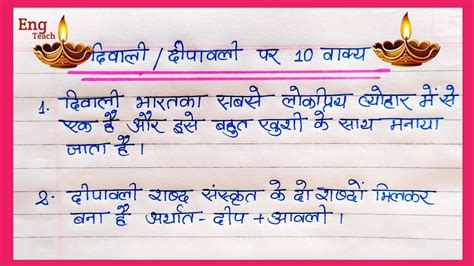 Eng
Teach
दिवाली / दीपावली पर 10 वाक्य
1. दिवाली भारतका सबसे लोकप्रिय त्योहार में से
एक है और इसे बहुत खुशी के साथ मनाया
जाता है।
2. दीपावली शब्द संस्कृत के दो शब्दों मिलकर
बना है अर्थात- दीप + आवली।